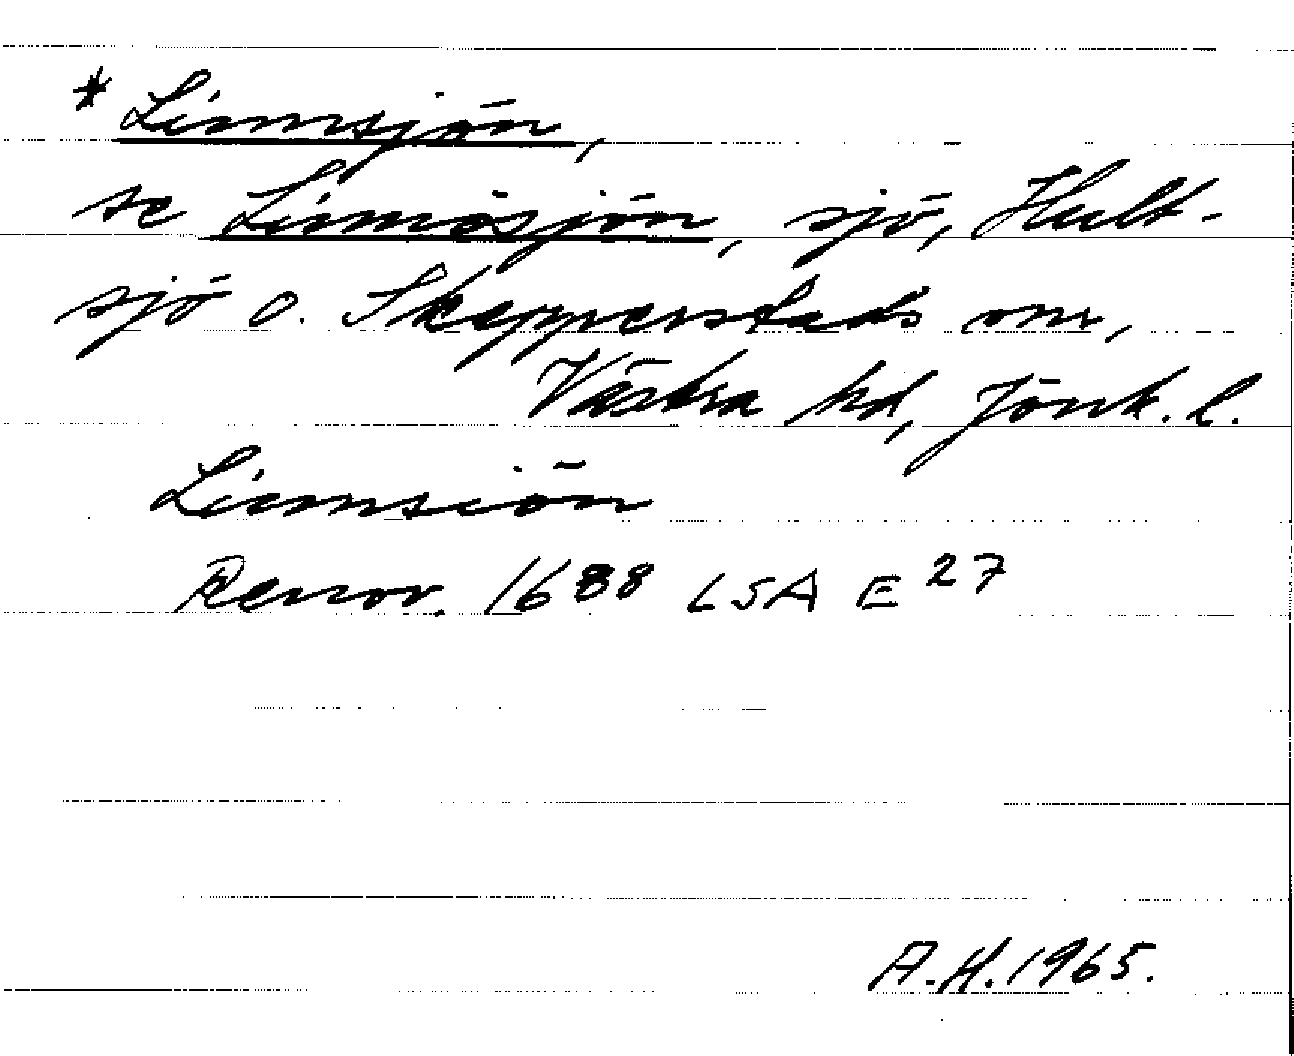 * Limsjön,
se Limösjön, sjö, Hult-
sjö o. Skepperstads snr,
Västra hd, Jönk. l.
Limsiön
Renov. 1688 LSA E 27
A.H. 1965.